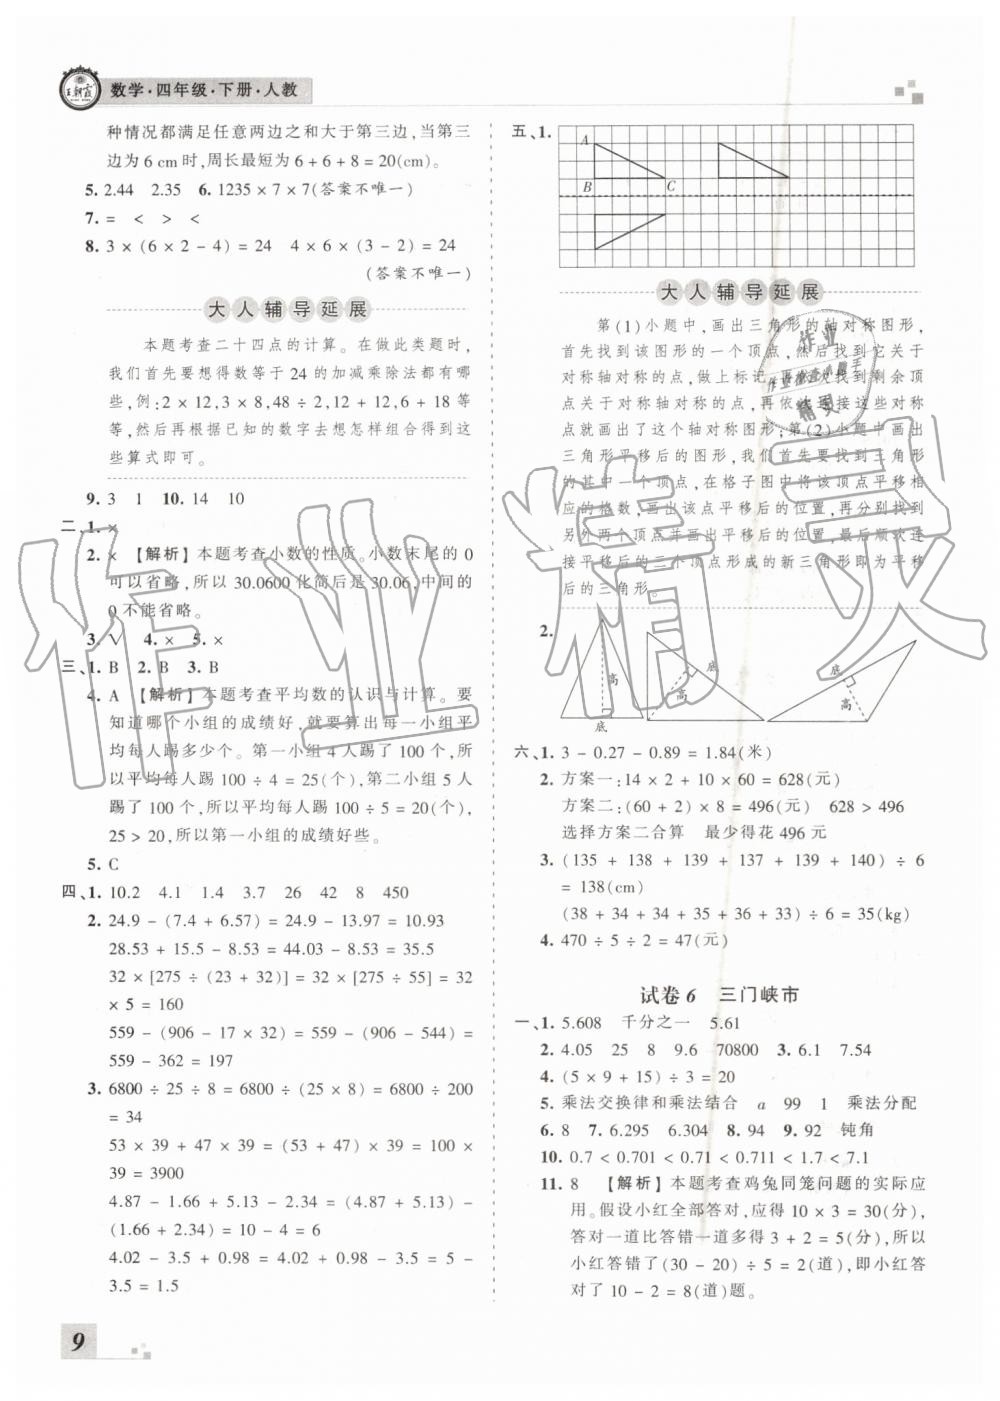 王朝霞
数学·四年级·下册·人教
种情况都满足任意两边之和大于第三边,当第三
边为 6 cm 时,周长最短为 6 + 6 + 8 = 20(cm)。
5. 2.44 2.35 6. 1235 × 7 × 7(答案不唯一)
7. = < > <
8. 3 × (6 × 2 - 4) = 24 4 × 6 × (3 - 2) = 24
(答案不唯一)
大人辅导延展
本题考查二十四点的计算。在做此类题时,
我们首先要想得数等于 24 的加减乘除法都有哪
些,例:2 × 12,3 × 8,48 ÷ 2,12 + 12,6 + 18 等
等,然后再根据已知的数字去想怎样组合得到这
些算式即可。
9. 3 1 10. 14 10
二、1. ×
2. × 【解析】本题考查小数的性质。小数末尾的 0
可以省略,所以 30.0600 化简后是 30.06,中间的
0 不能省略。
3. √ 4. × 5. ×
三、1. B 2. B 3. B
4. A 【解析】本题考查平均数的认识与计算。要
知道哪个小组的成绩好,就要算出每一小组平
均每人踢多少个。第一小组 4 人踢了 100 个,所
以平均每人踢 100 ÷ 4 = 25(个),第二小组 5 人
踢了 100 个,所以平均每人踢 100 ÷ 5 = 20(个),
25 > 20,所以第一小组的成绩好些。
5. C
四、1. 10.2 4.1 1.4 3.7 26 42 8 450
2. 24.9 - (7.4 + 6.57) = 24.9 - 13.97 = 10.93
28.53 + 15.5 - 8.53 = 44.03 - 8.53 = 35.5
32 × [275 ÷ (23 + 32)] = 32 × [275 ÷ 55] = 32
× 5 = 160
559 - (906 - 17 × 32) = 559 - (906 - 544) =
559 - 362 = 197
3. 6800 ÷ 25 ÷ 8 = 6800 ÷ (25 × 8) = 6800 ÷ 200
= 34
53 × 39 + 47 × 39 = (53 + 47) × 39 = 100 ×
39 = 3900
4.87 - 1.66 + 5.13 - 2.34 = (4.87 + 5.13) -
(1.66 + 2.34) = 10 - 4 = 6
4.02 - 3.5 + 0.98 = 4.02 + 0.98 - 3.5 = 5 -
3.5 = 1.5
9
五、1.
A
B
C
大人辅导延展
第(1)小题中,画出三角形的轴对称图形,
首先找到该图形的一个顶点,然后找到它关于
对称轴对称的点,做上标记,再依次找到剩余顶
点关于对称轴对称的点,再依次连接这些对称
点就画出了这个轴对称图形;第(2)小题中画出
三角形平移后的图形,我们首先要找到三角形
的其中一个顶点,在格子图中将该顶点平移相
应的格数,然后画出该点平移后的位置,再分别找到
另外两个顶点并画出平移后的位置,最后顺次连
接平移后的三个顶点形成的新三角形即为平移
后的三角形。
2.
高
底
底
高
底
高
六、1. 3 - 0.27 - 0.89 = 1.84(米)
2. 方案一:14 × 2 + 10 × 60 = 628(元)
方案二:(60 + 2) × 8 = 496(元) 628 > 496
选择方案二合算 最少得花 496 元
3. (135 + 138 + 139 + 137 + 139 + 140) ÷ 6
= 138(cm)
(38 + 34 + 34 + 35 + 36 + 33) ÷ 6 = 35(kg)
4. 470 ÷ 5 ÷ 2 = 47(元)
试卷 6 三门峡市
一、1. 5.608 千分之一 5.61
2. 4.05 25 8 9.6 70800 3. 6.1 7.54
4. (5 × 9 + 15) ÷ 3 = 20
5. 乘法交换律和乘法结合 a 99 1 乘法分配
6. 8 7. 6.295 6.304 8. 94 9. 92 钝角
10. 0.7 < 0.701 < 0.71 < 0.711 < 1.7 < 7.1
11. 8 【解析】本题考查鸡兔同笼问题的实际应
用。假设小红全部答对,应得 10 × 3 = 30(分),
答对一道比答错一道多得 3 + 2 = 5(分),所以
小红答错了 (30 - 20) ÷ 5 = 2(道),即小红答
对了 10 - 2 = 8(道)题。
作业精灵